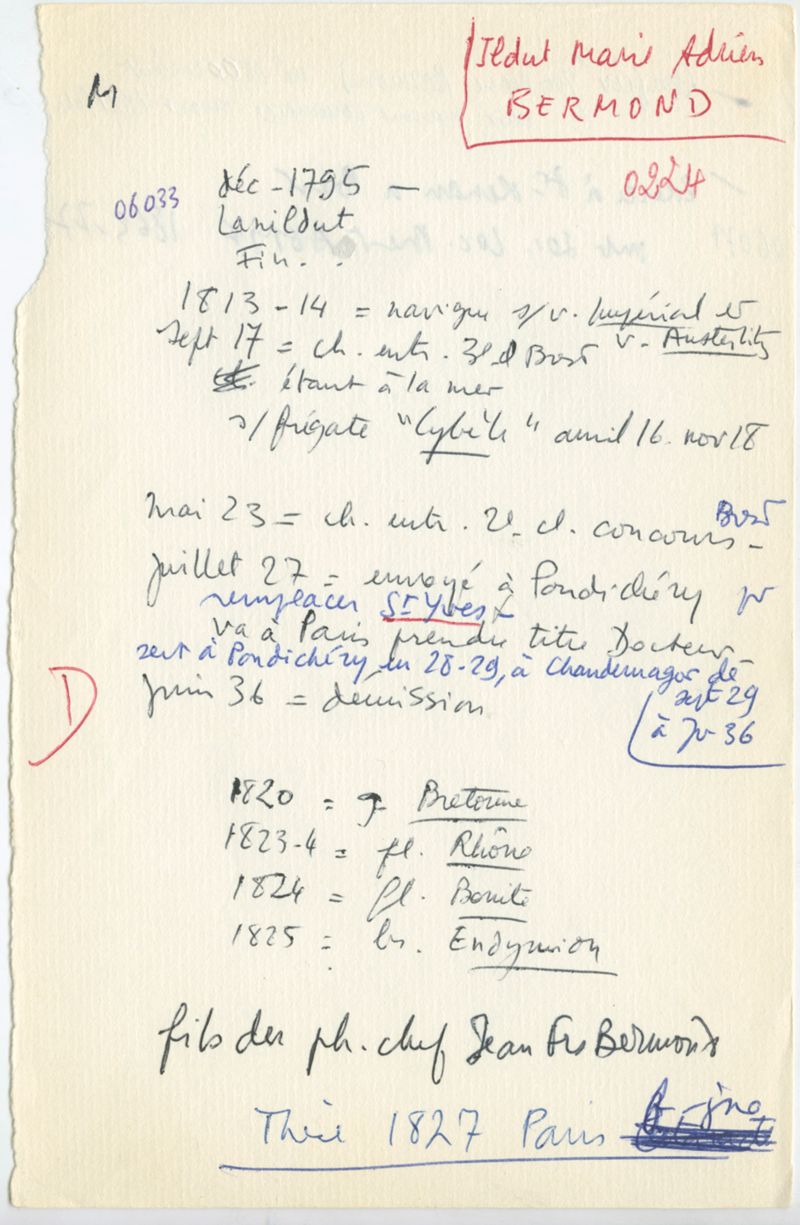 Ildut Marie Adrien
BERMOND
M
0224
06033
déc - 1795 —
Lanildut
Fin. .
1813 - 14 = navigue s/ v. Impérial et
v. Austerlitz
Sept 17 = ch. entr. 3e cl Brest
étant à la mer
s/ frégate "Cybèle" avril 16. nov 18
mai 23 = ch. entr. 2e cl. concours - Brest
juillet 27 = envoyé à Pondichéry pr
remplacer St Yves
va à Paris prendre titre Docteur
sert à Pondichéry en 28-29, à Chandernagor de
sept 29
à Jr 36
D
Juin 36 = démission
1820 = g. Bretonne
1823-4 = fl. Rhône
1824 = fl. Bonite
1825 = br. Endymion
fils du ph. chef Jean Frs Bermond
Thèse 1827 Paris